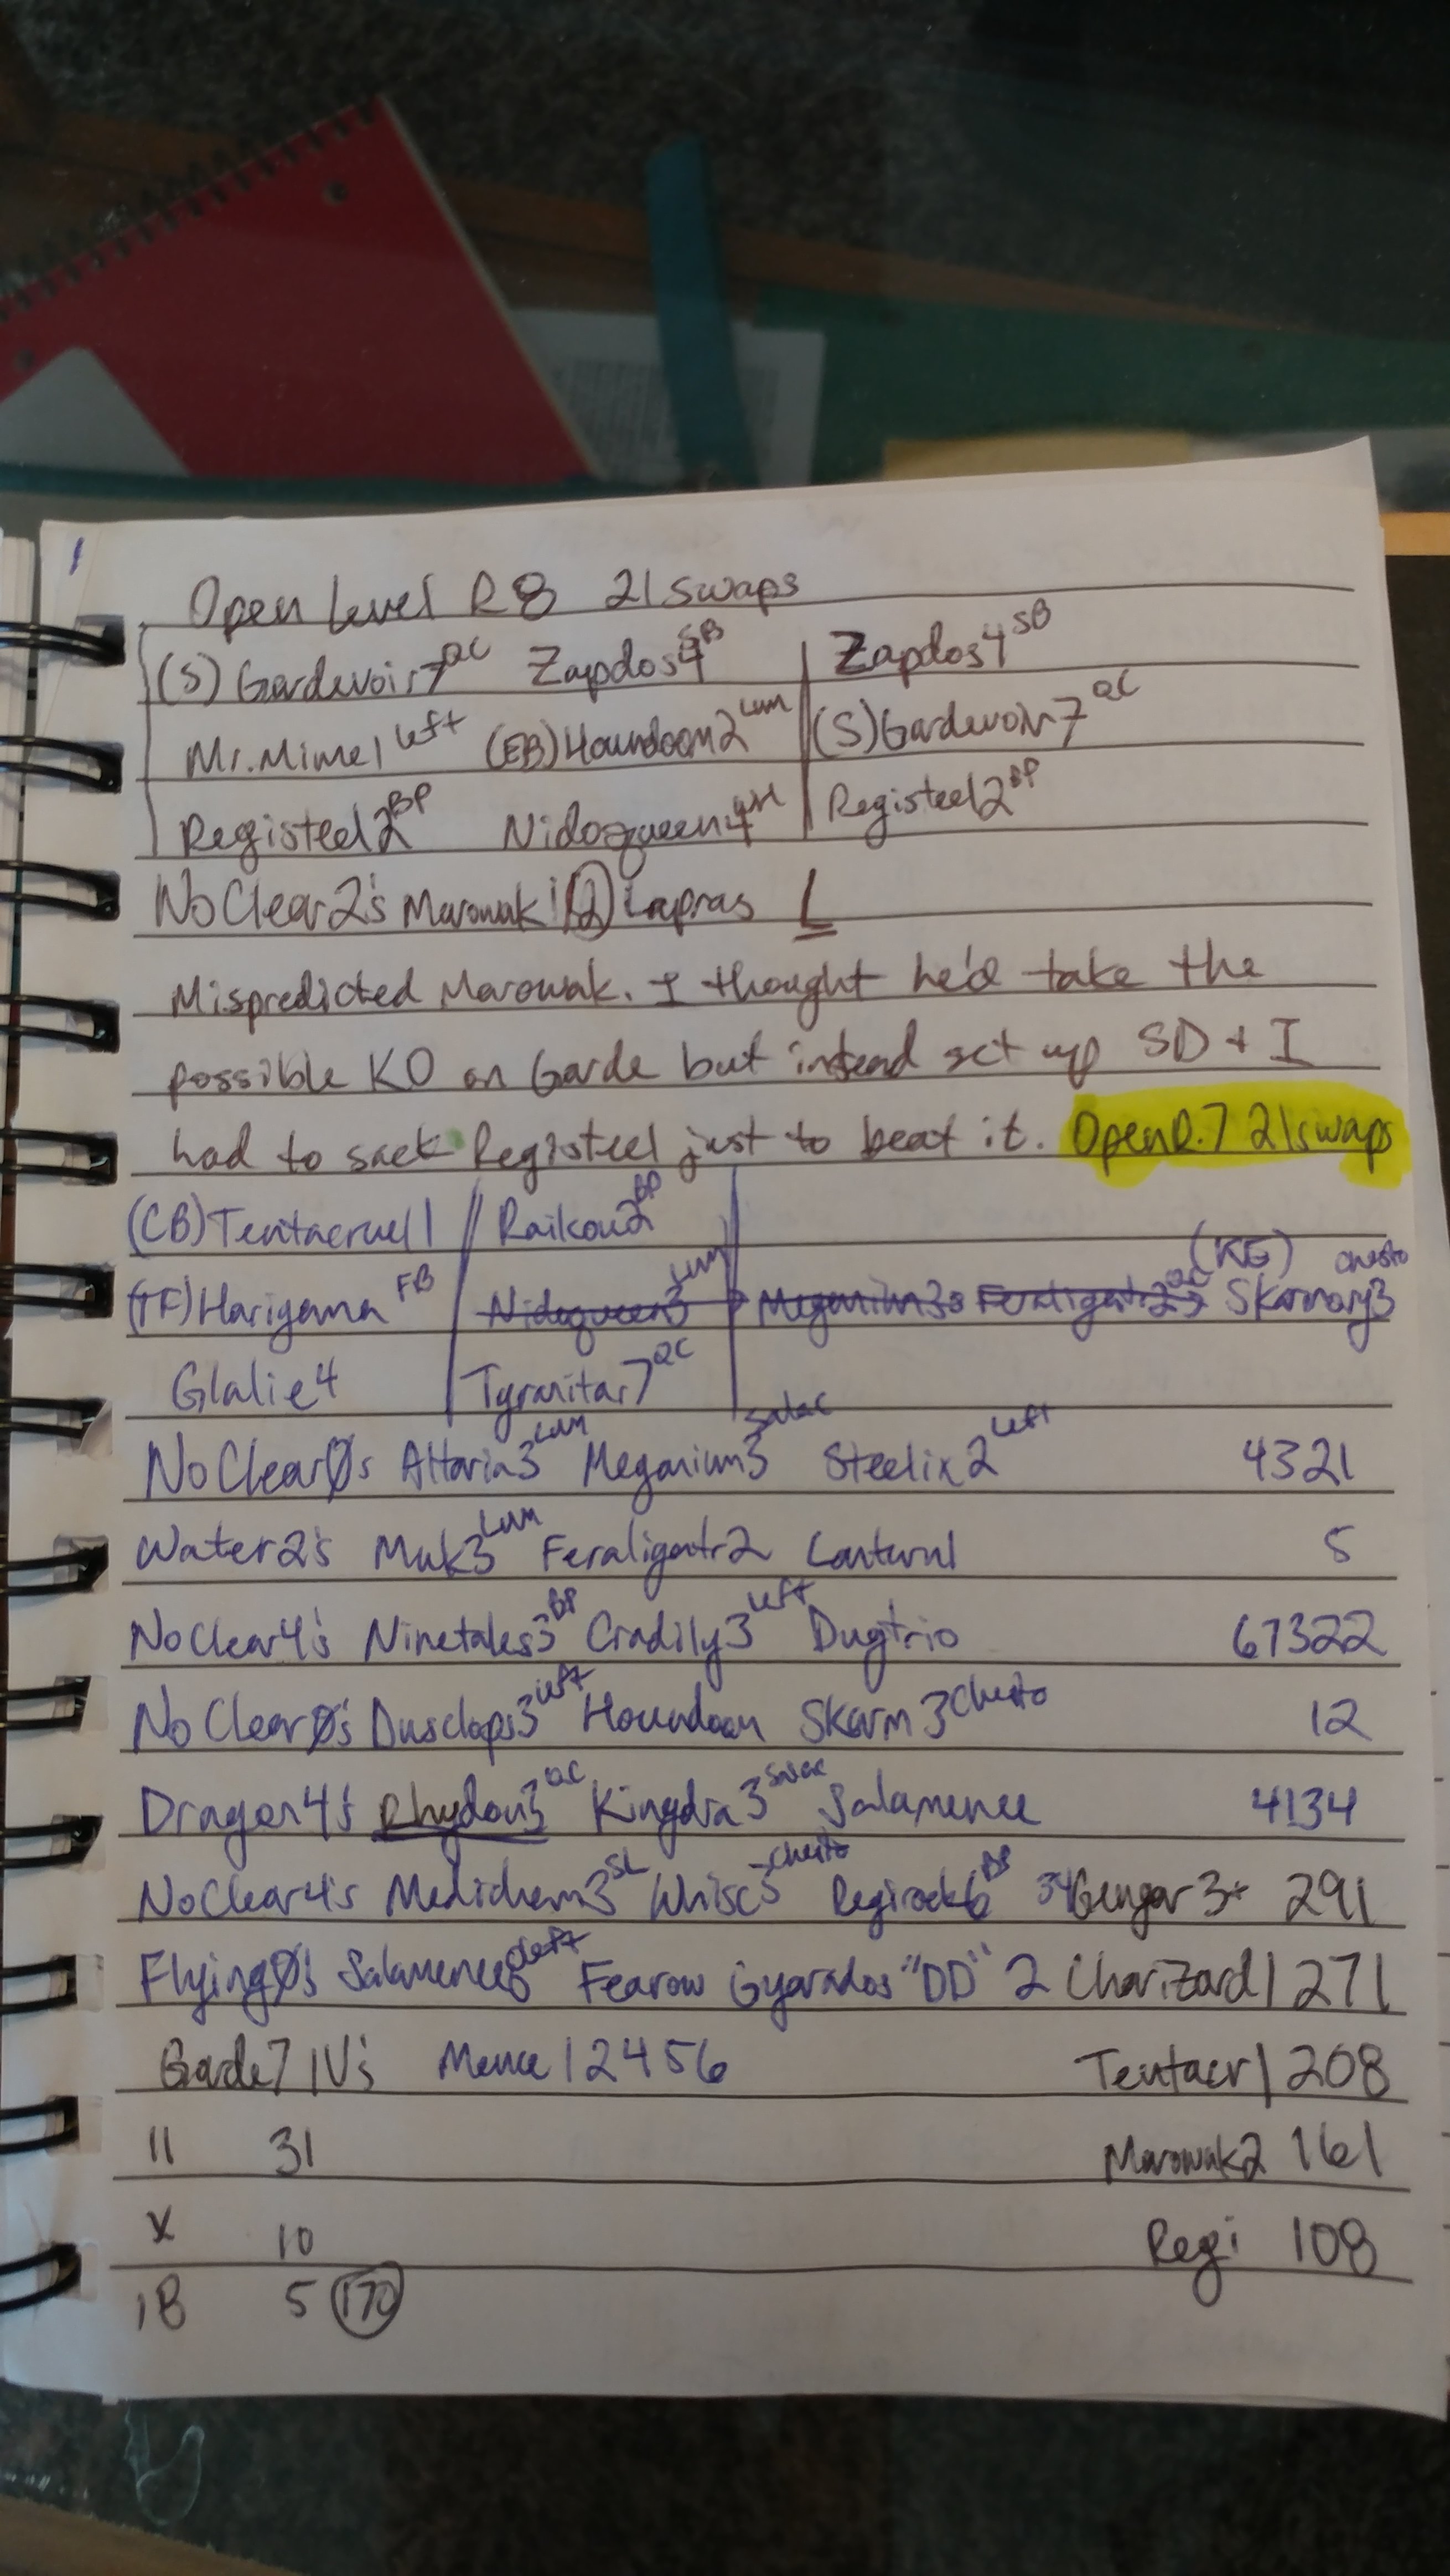 Open Level R8 21 swaps
(S) Gardevoir7 QC Zapdos4 SB | Zapdos4 SB
Mr.Mime1 Left (EB)Houndoom2 Lum | (S)Gardevoir7 QC
Registeel2 BP Nidoqueen4 | Registeel2 BP
NoClear2's Marowak 1(2) Lapras L
Mispredicted Marowak. I thought he'd take the
possible KO on Garde but instead set up SD + I
had to sack Registeel just to beat it. OpenR.7 21swaps
(CB)Tentacruel1 Raikou2 BP
(TF)Hariyama FB Nidoqueen3 Lum Meganium3 Feraligatr2 QC (KE) Skarmory3 Chesto
Glalie4 Tyranitar7 QC
NoClear0's Altaria3 Lum Meganium3 Salac Steelix2 Left 4321
Water2's Muk3 Lum Feraligatr2 Lanturn1 5
NoClear4's Ninetales3 BP Cradily3 Left Dugtrio 67322
NoClear0's Dusclops3 Left Houndoom Skarm3 Chesto 12
Dragon4's Rhydon3 QC Kingdra3 Salac Salamence 4134
NoClear4's Medicham3 SL Whisc3 Chesto Regirock6 Gengar3 291
Flying0's Salamence6 Left Fearow Gyarados "DD" 2 Charizard1 271
Garde7 IV's Mence 12456 Tentacr1 208
11 31 Marowak2 161
x 10 Regi 108
18 5 (170)